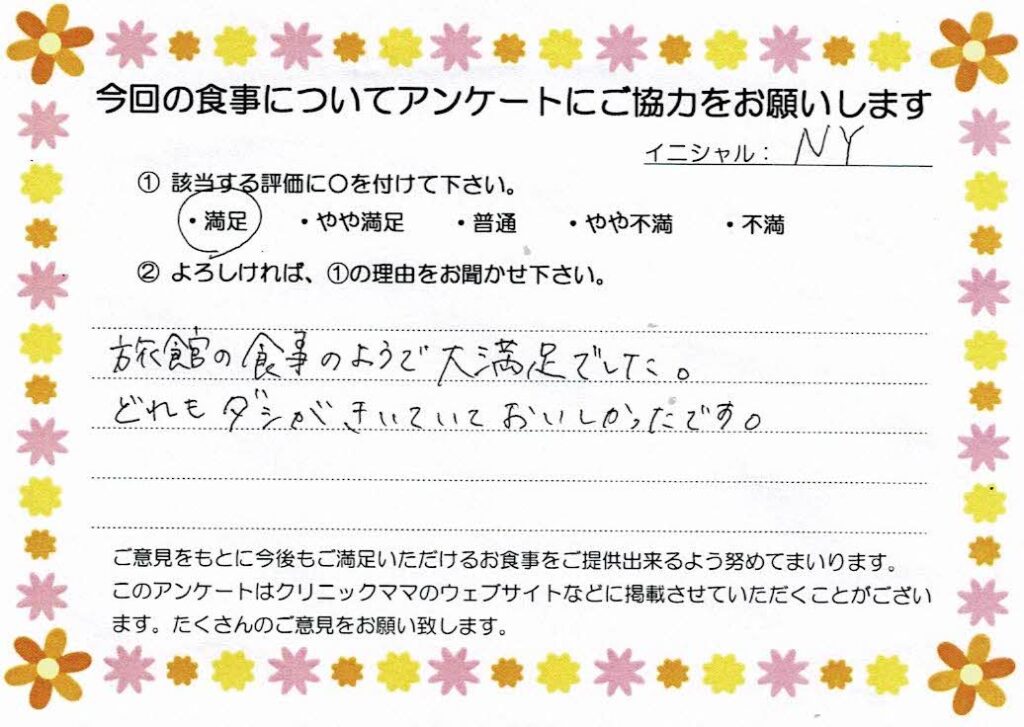 今回の食事についてアンケートにご協力をお願いします
イニシャル： NY
① 該当する評価に〇を付けて下さい。
・満足 ・やや満足 ・普通 ・やや不満 ・不満
② よろしければ、①の理由をお聞かせ下さい。
旅館の食事のようで大満足でした。
どれもダシがきいていておいしかったです。
ご意見をもとに今後もご満足いただけるお食事をご提供出来るよう努めてまいります。
このアンケートはクリニックママのウェブサイトなどに掲載させていただくことがござい
ます。たくさんのご意見をお願い致します。